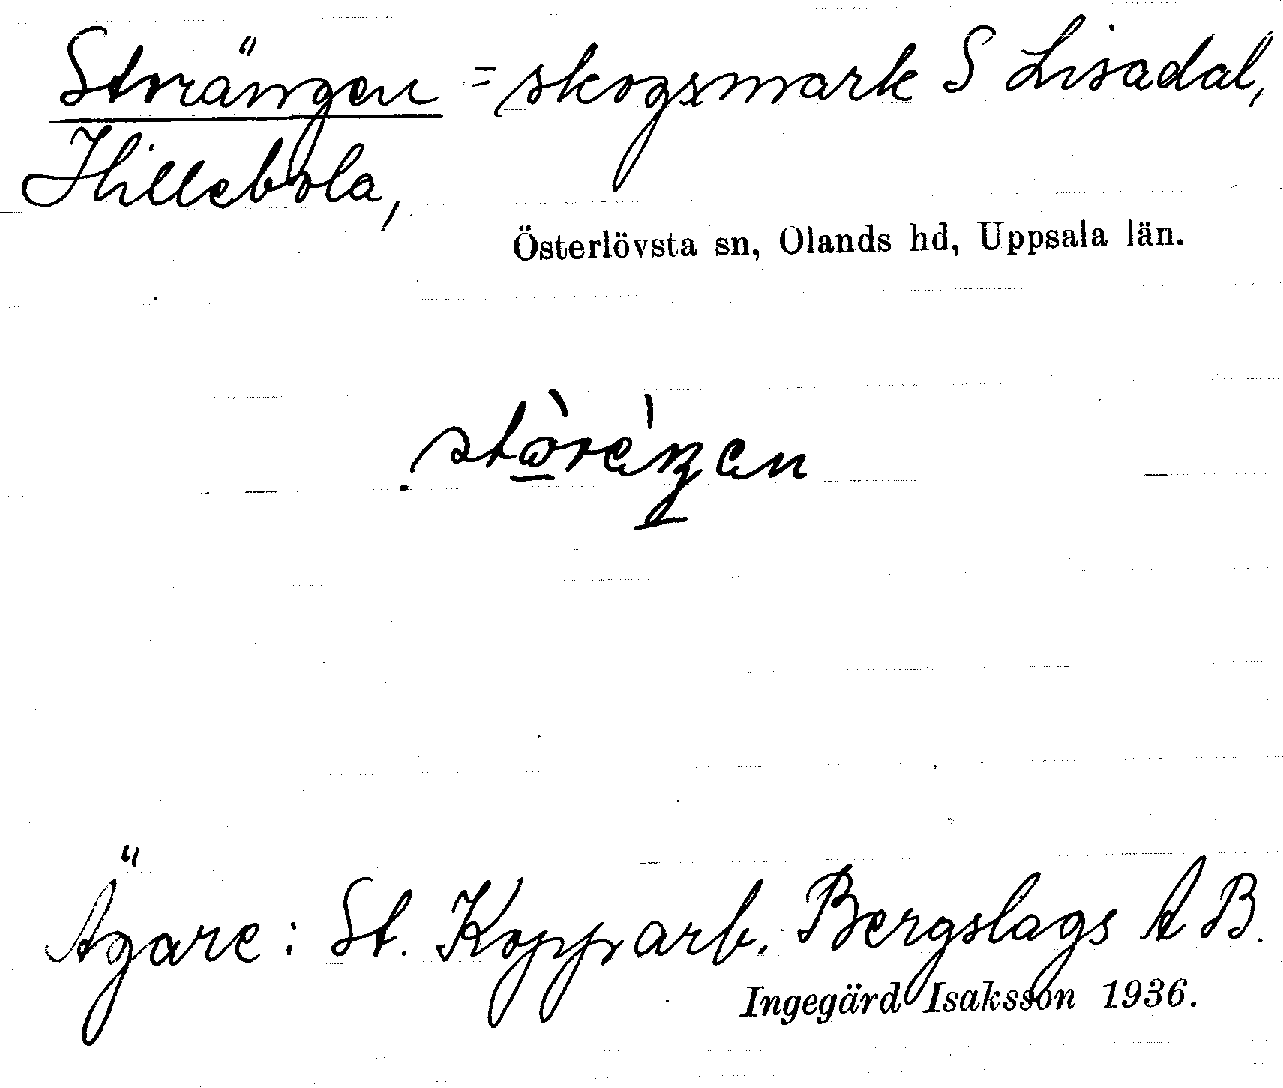 Storängen = skogsmark S Lisadal,
Hillebola,
Österlövsta sn, Olands hd, Uppsala län.
Ägare: St. Kopparb. Bergslags AB.
Ingegärd Isaksson 1936.